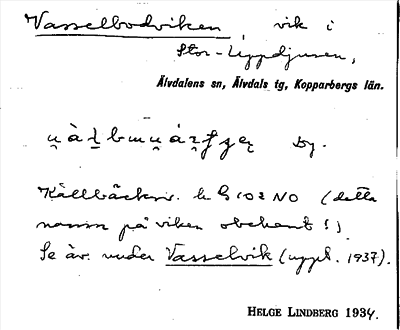 Vasselbodviken, vik i
Stor-Uppdjusen,
Älvdalens sn, Älvdals tg, Kopparbergs län.
by.
Källbäcksv. bl. G 102 NO (detta
namn på viken obekant!)
Se äv. under Vasselvik (uppt. 1937).
HELGE LINDBERG 1934.